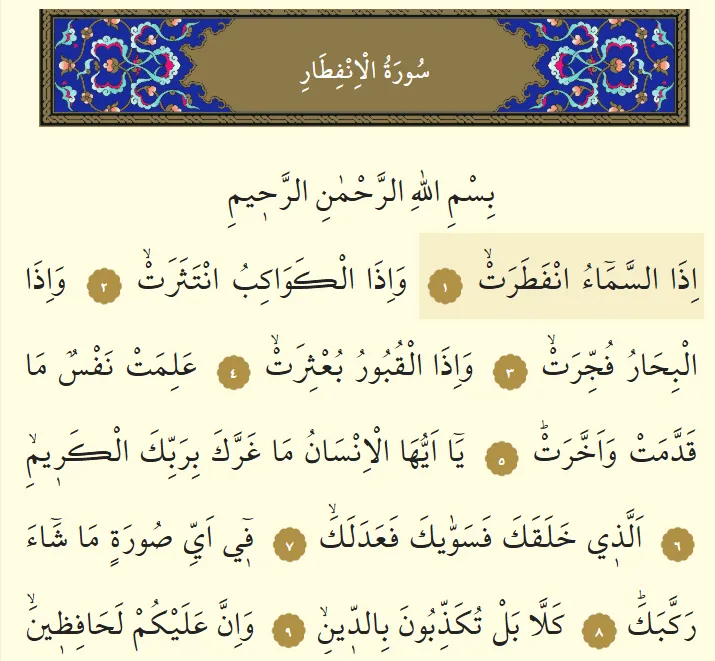 سُورَةُ الْاِنْفِطَارِ
بِسْمِ اللّٰهِ الرَّحْمٰنِ الرَّح۪يمِ
اِذَا السَّمَٓاءُ انْفَطَرَتْۙ ﴿١﴾ وَاِذَا الْكَوَاكِبُ انْتَثَرَتْۙ ﴿٢﴾ وَاِذَا
الْبِحَارُ فُجِّرَتْۙ ﴿٣﴾ وَاِذَا الْقُبُورُ بُعْثِرَتْۙ ﴿٤﴾ عَلِمَتْ نَفْسٌ مَا
قَدَّمَتْ وَاَخَّرَتْۜ ﴿٥﴾ يَٓا اَيُّهَا الْاِنْسَانُ مَا غَرَّكَ بِرَبِّكَ الْكَر۪يمِۙ
﴿٦﴾ اَلَّذ۪ي خَلَقَكَ فَسَوّٰيكَ فَعَدَلَكَۙ ﴿٧﴾ ف۪ٓي اَيِّ صُورَةٍ مَا شَٓاءَ
رَكَّبَكَۜ ﴿٨﴾ كَلَّا بَلْ تُكَذِّبُونَ بِالدّ۪ينِۙ ﴿٩﴾ وَاِنَّ عَلَيْكُمْ لَحَافِظ۪ينَۙ